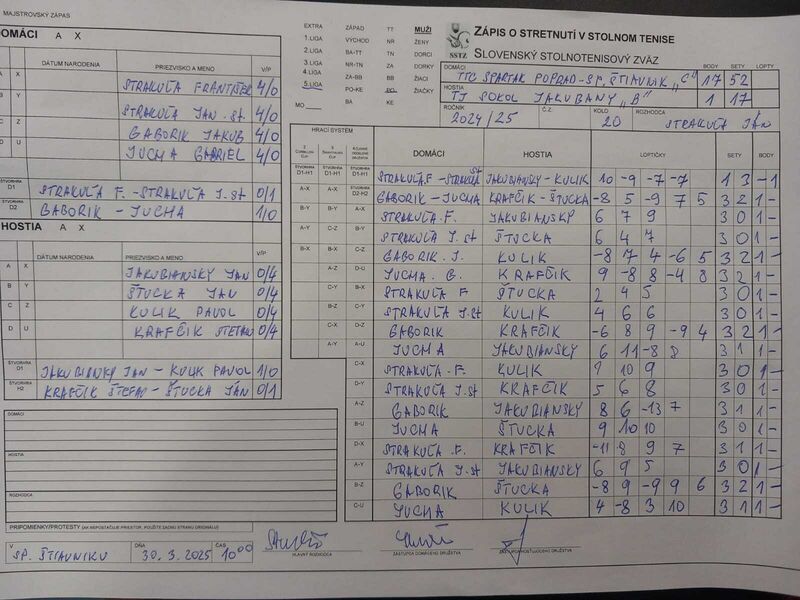 MAJSTROVSKÝ ZÁPAS
DOMÁCI A X
DÁTUM NARODENIA PRIEZVISKO A MENO V/P
A X STRAKUĽA FRANTIŠEK 4/0
B Y STRAKUĽA JAN. st. 4/0
C Z GABORIK JAKUB 4/0
D U JUCHA GABRIEL 4/0
ŠTVORHRA D1 STRAKUĽA F. - STRAKUĽA J. st 0/1
ŠTVORHRA D2 GABORIK - JUCHA 1/0
HOSTIA A X
DÁTUM NARODENIA PRIEZVISKO A MENO V/P
A X JAKUBIANSKÝ JAN 0/4
B Y ŠTUCKA JAN 0/4
C Z KULIK PAVOL 0/4
D U KRAFČIK STEFAN 0/4
ŠTVORHRA D1 JAKUBIANSKÝ JAN - KULIK PAVOL 1/0
ŠTVORHRA H2 KRAFČIK ŠTEFAN - ŠTUCKA JÁN 0/1
DOMÁCI
HOSTIA
ROZHODCA
PRIPOMIENKY/PROTESTY (AK NEPOSTAČUJE PRIESTOR, POUŽITE ZADNÚ STRANU ORIGINÁLU)
V SP. ŠTIAVNIKU DŇA 30.3.2025 ČAS 10 00
HLAVNÝ ROZHODCA
ZÁSTUPCA DOMÁCEHO DRUŽSTVA
ZÁSTUPCA HOSŤUJÚCEHO DRUŽSTVA
EXTRA ZÁPAD TT MUŽI
1.LIGA VÝCHOD NR ŽENY
2.LIGA BA-TT TN DORCI
3.LIGA NR-TN ZA DORKY
4.LIGA ZA-BB BB ŽIACI
5.LIGA PO-KE PO ŽIAČKY
MO BA KE
SSTZ
ZÁPIS O STRETNUTÍ V STOLNOM TENISE
SLOVENSKÝ STOLNOTENISOVÝ ZVÄZ
BODY SETY LOPTY
DOMÁCI TTC SPARTAK POPRAD-SP. ŠTIAVNIK „C" 17 52
HOSTIA TJ SOKOL JAKUBANY „B" 1 17
ROČNÍK 2024/25 Č.Z. KOLO 20 ROZHODCA STRAKUĽA JÁN
HRACÍ SYSTÉM DOMÁCI HOSTIA LOPTIČKY SETY BODY
D1-H1 D1-H1 D1-H1 STRAKUĽA.F - STRAKUĽA st JAKUBIANSKY - KULIK 10 -9 -7 -7 1 3 -1
A-X A-X D2-H2 GABORIK - JUCHA KRAFČIK - ŠTUCKA -8 5 -9 7 5 3 2 1 -
B-Y B-Y A-X STRAKUĽA. F. JAKUBIANSKÝ 6 7 9 3 0 1 -
A-Y C-Z B-Y STRAKUĽA J. st ŠTUCKA 6 4 7 3 0 1 -
B-X B-X C-Z GABORIK. J. KULIK -8 17 4 -6 5 3 2 1 -
A-Z D-U JUCHA. G. KRAFČIK 9 -8 8 -4 8 3 2 1 -
C-Y B-X STRAKUĽA F ŠTUCKA 2 4 5 3 0 1 -
B-Z C-Y STRAKUĽA J.st KULIK 4 6 6 3 0 1 -
C-X D-Z GABORIK KRAFČIK -6 8 9 -9 4 3 2 1 -
A-Y A-U JUCHA JAKUBIANSKÝ 6 11 -8 8 3 1 1 -
C-X STRAKUĽA. F. KULIK 7 10 9 3 0 1 -
D-Y STRAKUĽA J. st KRAFČIK 5 6 8 3 0 1 -
A-Z GABORIK JAKUBIANSKÝ 8 6 -13 7 3 1 1 -
B-U JUCHA ŠTUCKA 9 10 10 3 0 1 -
D-X STRAKUĽA .F. KRAFČIK -11 8 9 7 3 1 1 -
A-Y STRAKUĽA J. st JAKUBIANSKÝ 6 9 5 3 0 1 -
B-Z GABORIK ŠTUCKA -8 9 -9 9 6 3 2 1 -
C-U JUCHA KULIK 4 -8 3 10 3 1 1 -